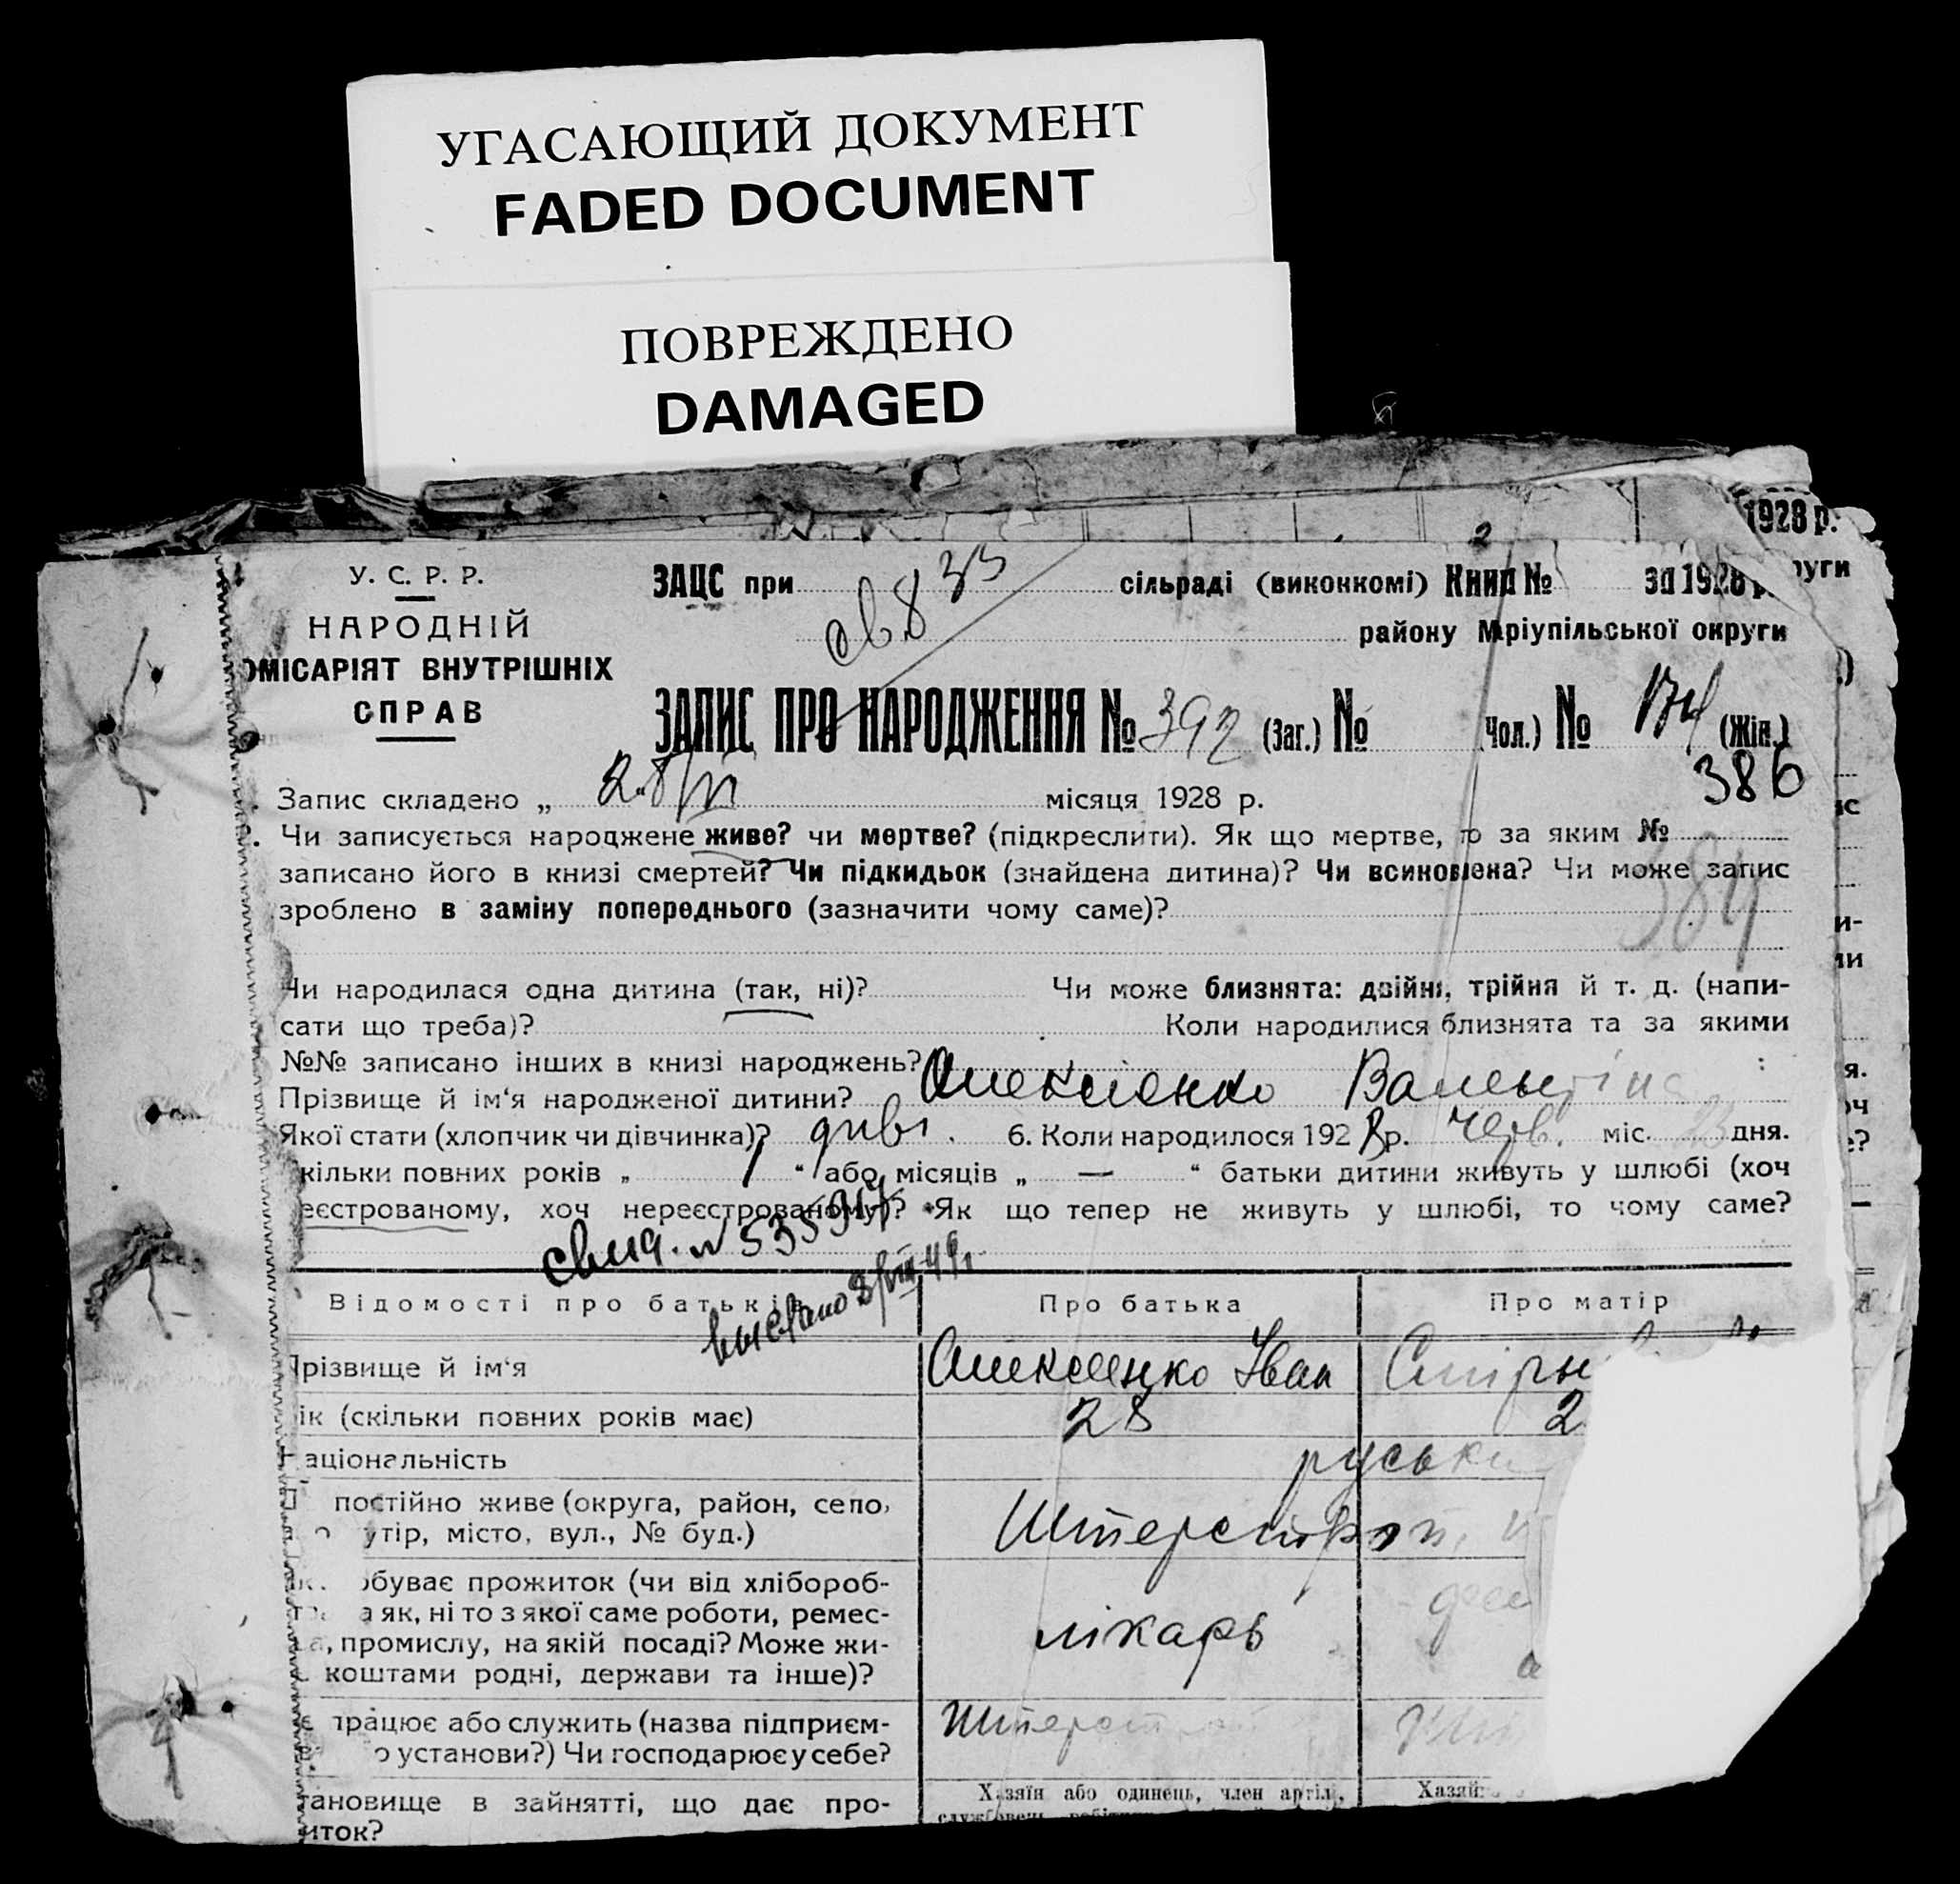 УГАСАЮЩИЙ ДОКУМЕНТ
FADED DOCUMENT
ПОВРЕЖДЕНО
DAMAGED
1928 р.
руги
2
У. С. Р. Р.
НАРОДНІЙ
ОМІСАРІЯТ ВНУТРІШНІХ
СПРАВ
ЗАЦС при сільраді (виконкомі) Книга № за 1928 р.
св 833
району Мріупільської округи
ЗАПИС ПРО НАРОДЖЕННЯ № 392 (Заг.) № Чол.) № (Жін.)
386
Запис складено „ місяця 1928 р.
Чи записується народжене живе? чи мертве? (підкреслити). Як що мертве, то за яким №
записано його в книзі смертей? Чи підкидьок (знайдена дитина)? Чи всиновлена? Чи може запис
зроблено в заміну попереднього (зазначити чому саме)?
384
Чи народилася одна дитина (так, ні)? Чи може близнята: двійня, трійня й т. д. (напи-
сати що треба)? Коли народилися близнята та за якими
№№ записано інших в книзі народжень?
Прізвище й ім'я народженої дитини? Алексієнко Валентіна
Якої стати (хлопчик чи дівчинка)? дивч. 6. Коли народилося 1928 р. Черв. міс. 23 дня.
кільки повних років „ 1 “ або місяців „ — “ батьки дитини живуть у шлюбі (хоч
еєстрованому, хоч нереєстрованому)? Як що тепер не живуть у шлюбі, то чому саме?
свид. №
выслано 8/VIII-49
Відомості про батьків Про батька Про матір
Прізвище й ім'я Алексієнко Іван
ік (скільки повних років має) 28 2
аціональність руськи
постійно живе (округа, район, село,
утір, місто, вул., № буд.) Штерстрой,
обуває прожиток (чи від хлібороб-
а як, ні то з якої саме роботи, ремес-
а, промислу, на якій посаді? Може жи-
коштами родні, держави та інше)? лікарь
працює або служить (назва підприєм-
о установи?) Чи господарює у себе? Штерстрой
тановище в зайнятті, що дає про-
иток?
Хазяїн або одинець, член артілі,
службовець робітник
Хазяй